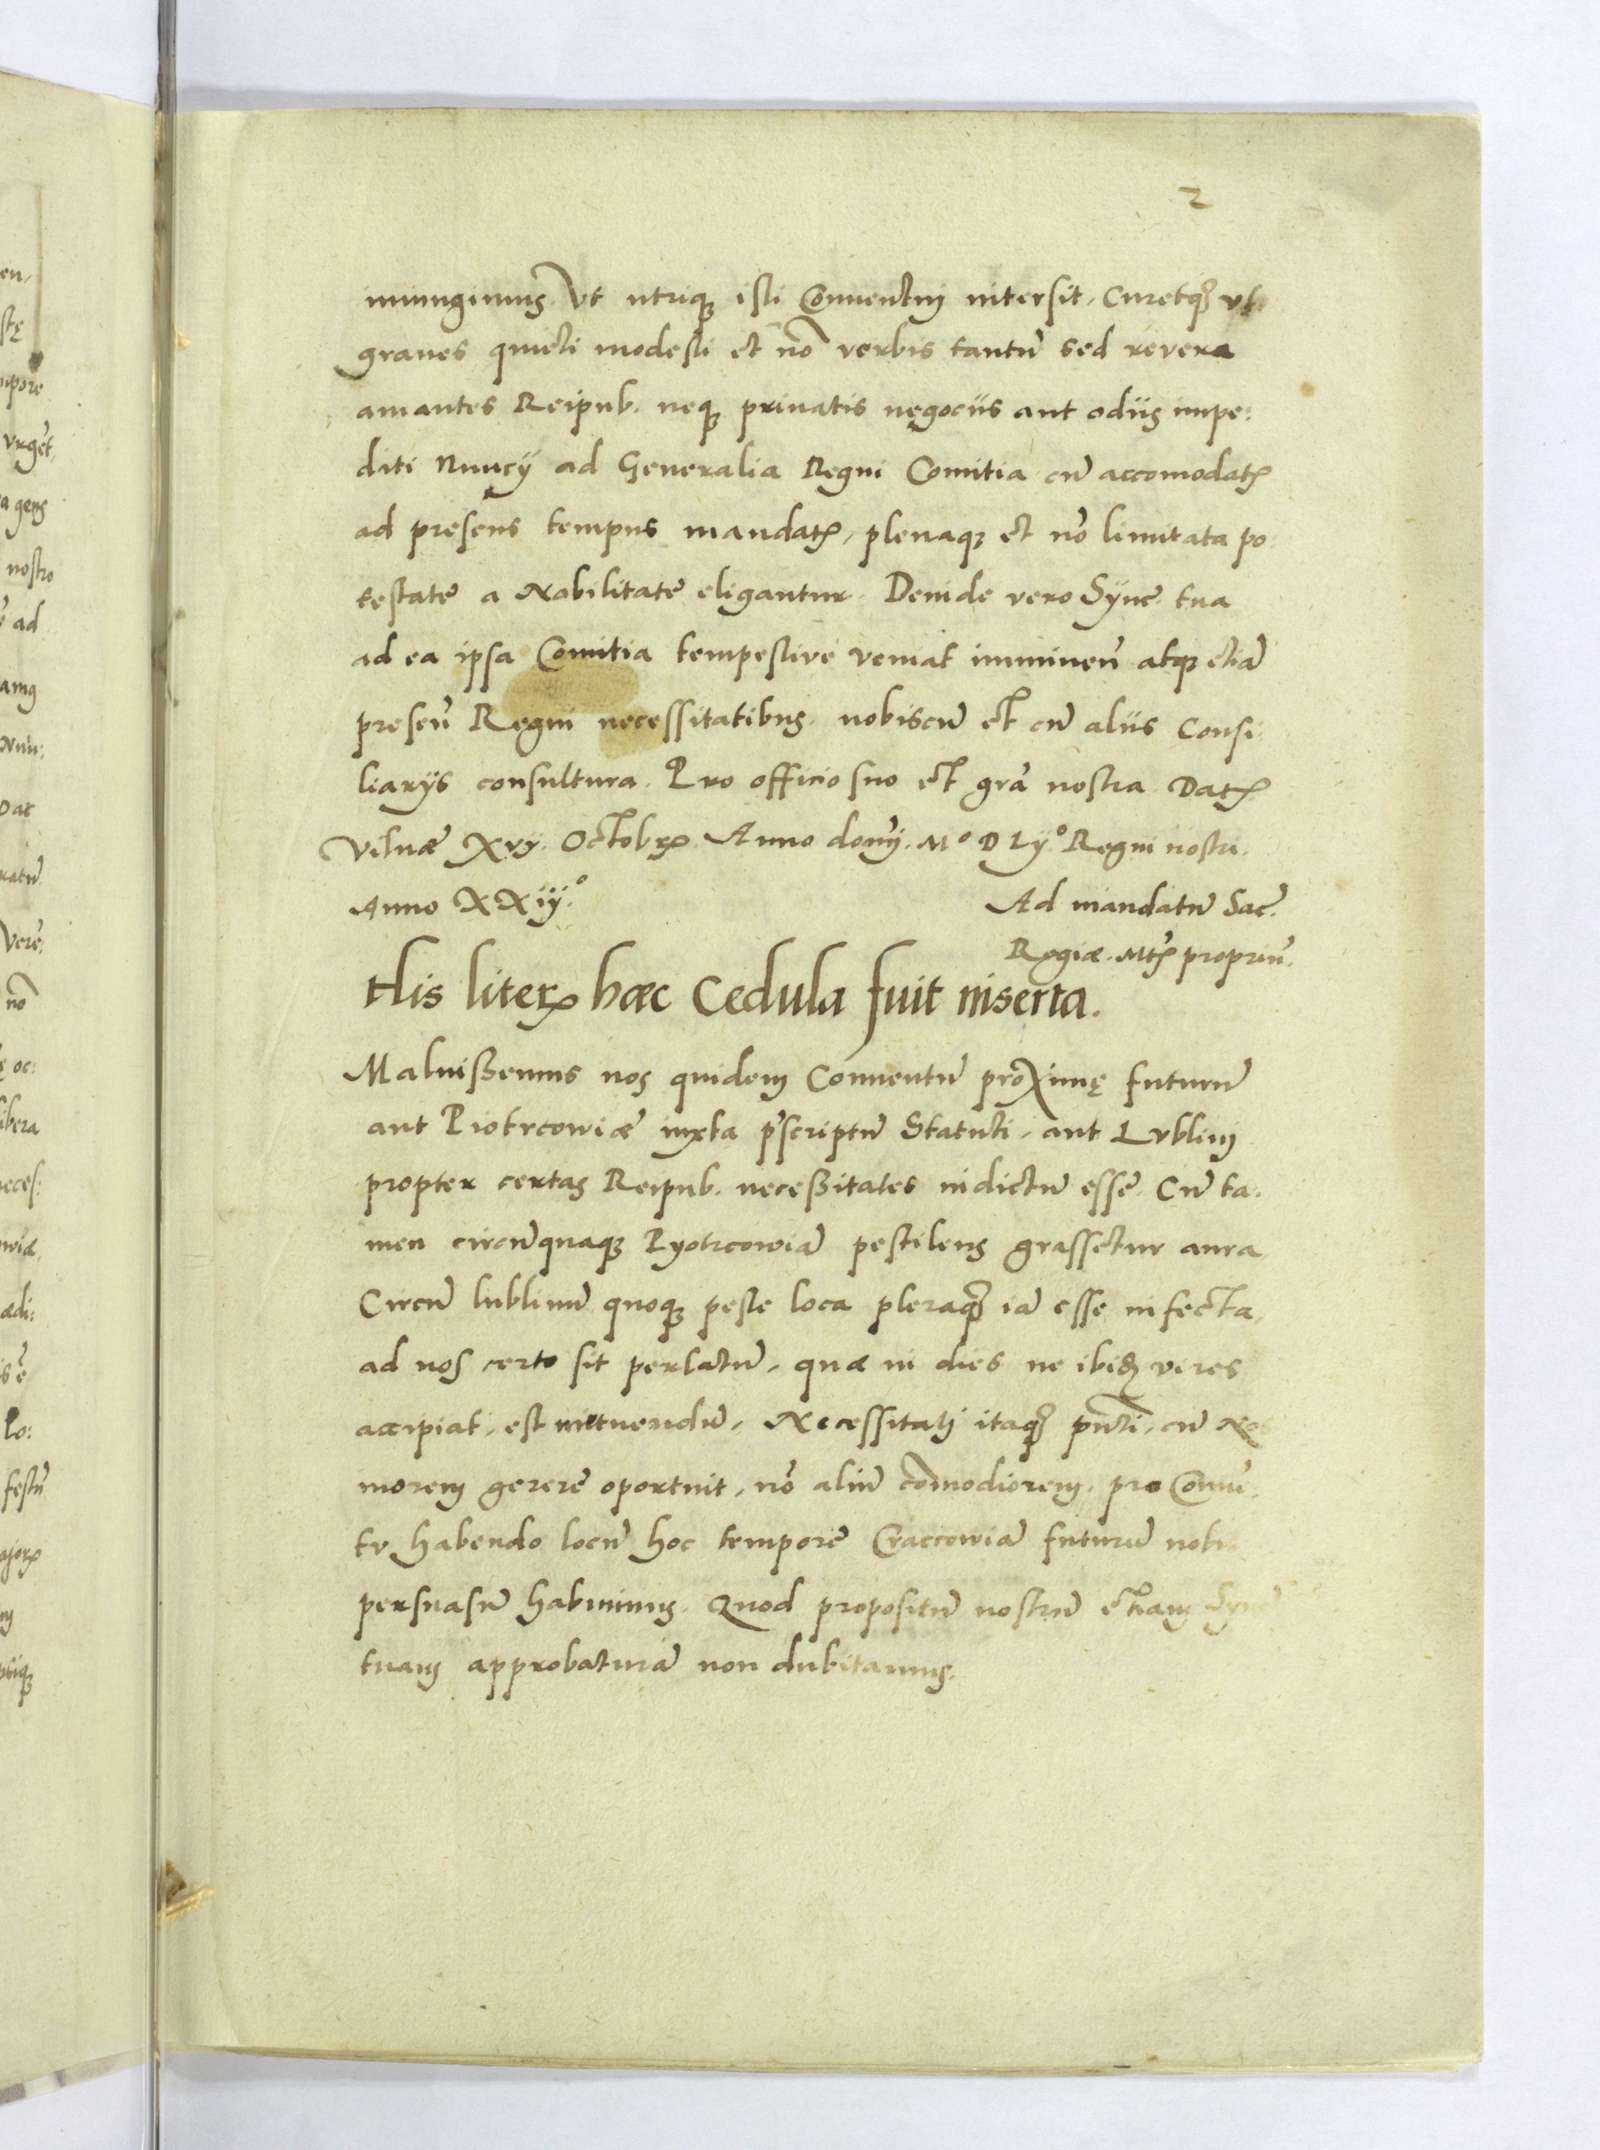 2
iniungimus. Vt utriq₃ isti Conuentui intersit, Curetq₃ vt
graues quieti modesti et nō verbis tantū sed revera
amantes Reipub. neq₃ priuatis negociis aut odiis impe:
diti Nuncÿ ad Generalia Regni Comitia cū accomodatꝭ
ad presens tempus mandatꝭ, plenaq₃ et nō limitata po:
testate a Nobilitate eligantur. Deinde vero Sÿnc. tua
ad ea ipsa Comitia tempestive veniat imminen̄ atq₃ etiā
presen̄ Regni necessitatibus. nobiscū et cū aliis Consi:
liarÿs consultura. Pro officio suo et grā nostra. Datꝭ
Vilnæ XVÿ. Octobrꝭ. Anno domÿ. Mᵒ D Lÿᵒ Regni nostri.
Anno XXiÿᵒ.
Ad mandatū Sac̄.
Regiæ. Mtꝭ propriū.
His literꝭ hæc Cedula fuit inserta.
Maluissemus nos quidem Conuentū proximę futurū
aut Piotrcowiæ iuxta p̄scriptū Statuti, aut Lublini
propter certas Reipub. necessitates indictū esse. Cū ta:
men circūquaq₃ Pyotrcowiā pestilens grassetur aura
Circū lublinū quoq₃ peste loca pleraq₃ iā esse infecta,
ad nos certo sit perlatū, quæ in dies ne ibidꝫ vires
accipiat, est metuendū, Necessitati itaq₃ pn̄ti, cū
morem gerere oportuit, nō aliū cōmodiorem, pro Conuē:
tu habendo locū hoc tempore Craccowiā futurū nobis
persuasū habuimus. Quod propositū nostrū etiam Sync̄
tuam approbaturā non dubitamus.